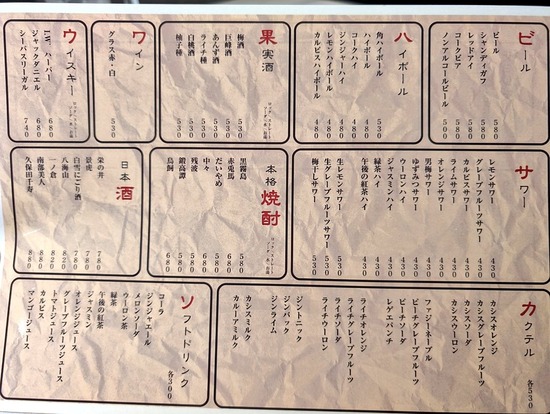 ビール
ビール 580
シャンディガフ 580
レッドアイ 580
コークビア 580
ノンアルコールビール 500
ハイボール
角ハイボール 530
ハイボール 480
コークハイ 480
ジンジャーハイ 480
レモンハイボール 480
カルピスハイボール 480
果実酒
ロック、ストレート
ソーダ、水、お湯
梅酒 530
巨峰酒 530
あんず酒 530
ライチ種 530
白桃酒 530
柚子種 530
ワイン
グラス赤・白 530
ウイスキー
I.W.ハーパー 680
ジャックダニエル 680
シーバスリーガル 740
サワー
レモンサワー 430
グレープフルーツサワー 430
カルピスサワー 430
ライムサワー 430
オレンジサワー 430
男梅サワー 430
ゆずみつサワー 430
ウーロンハイ 430
ジャスミンハイ 430
緑茶ハイ 430
午後の紅茶ハイ 430
生レモンサワー 530
生グレープフルーツサワー 530
梅干しサワー 530
本格焼酎
ロック、ストレート
ソーダ、水、お湯
黒霧島 580
赤兎馬 680
だいやめ 580
中々 680
残波 580
鍛高譚 580
鳥飼 680
日本酒
栄の井 780
景虎 780
白雪にごり酒 780
八海山 820
一ノ倉 820
南部美人 880
久保田千寿 880
カクテル 各530
カシスオレンジ
カシスグレープフルーツ
カシスソーダ
カシスウーロン
ファジーネーブル
ピーチグレープフルーツ
ピーチソーダ
レゲエパンチ
ライチオレンジ
ライチグレープフルーツ
ライチソーダ
ライチウーロン
ジントニック
ジンバック
ジンライム
カシスミルク
カルーアミルク
ソフトドリンク 各300
コーラ
ジンジャエール
メロンソーダ
ウーロン茶
緑茶
午後の紅茶
ジャスミン
オレンジジュース
グレープフルーツジュース
トマトジュース
カルピス
マンゴージュース